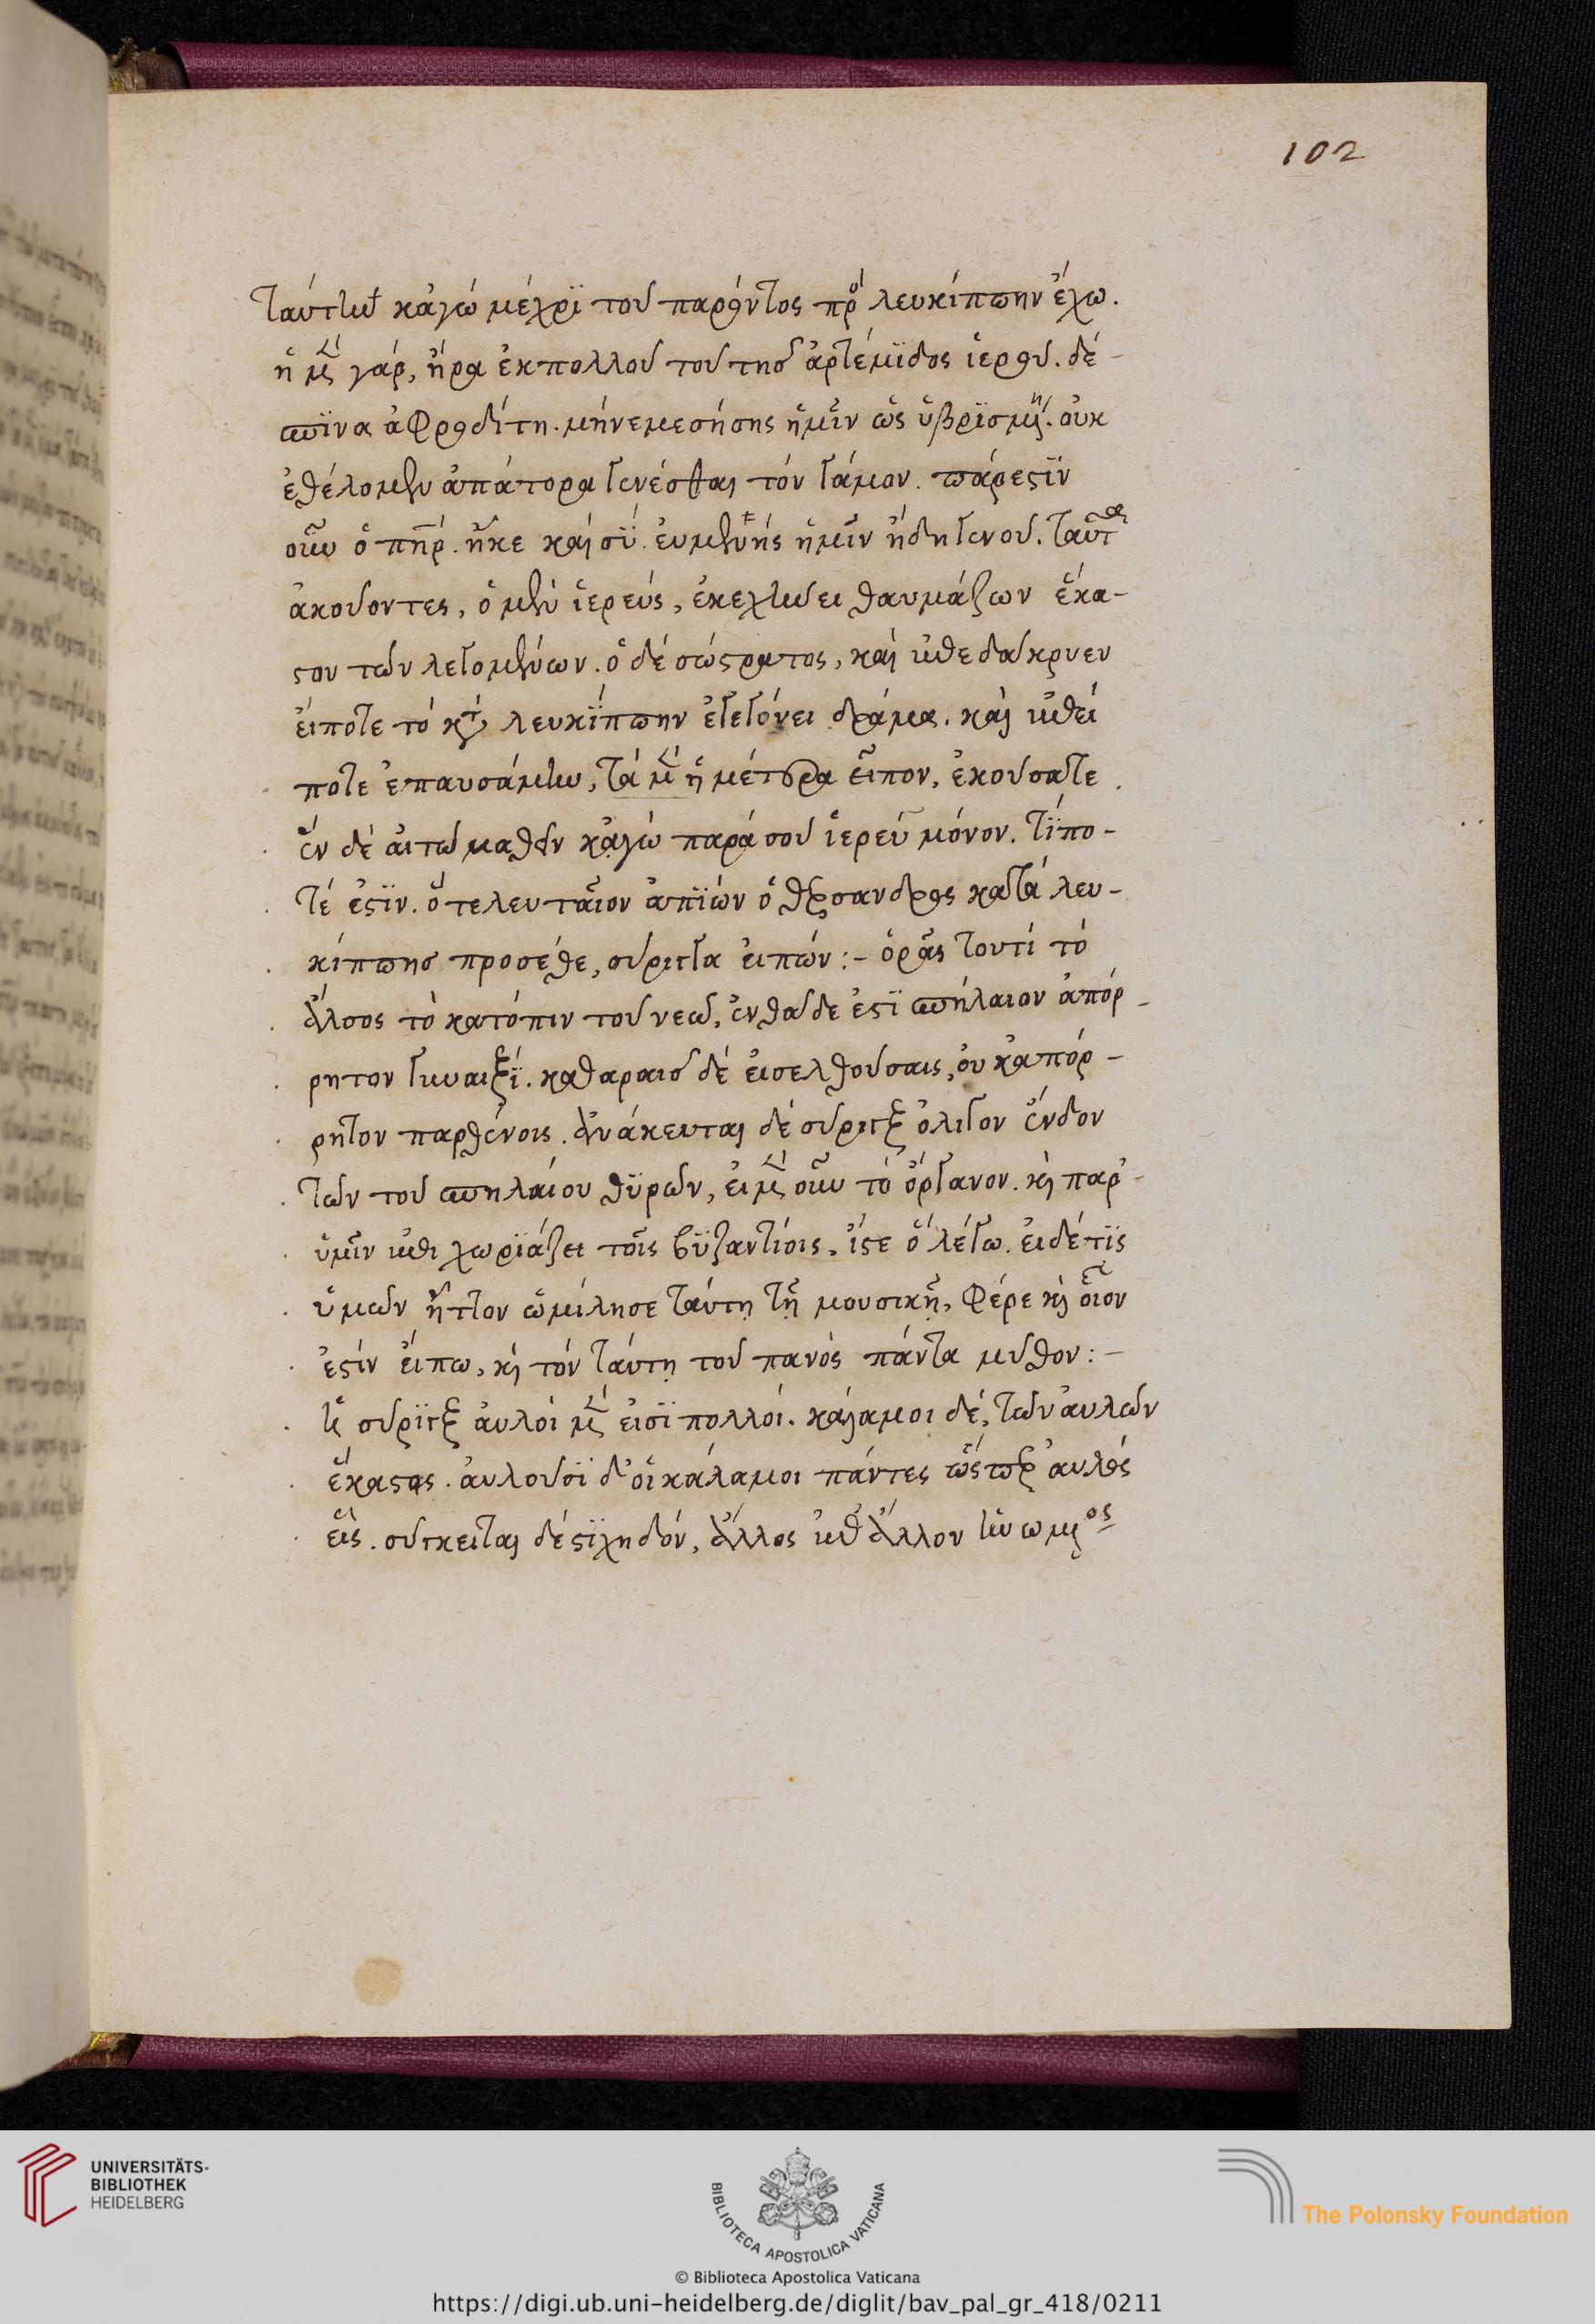 102
ταύτην κἀγὼ μέχρϊ τοῦ παρόντος πρὸ λευκίππην ἔχω.
ἡ μὲν γάρ, ἤρα ἐκπολλοῦ τοῦ τῆσ ἀρτέμϊδος ἱεροῦ. δέ-
σποινα ἀφροδίτη. μὴνεμεσήσης ἡμῖν ὡς ὑβρϊσμένη. οὐκ
ἐθέλομεν ἀπάτορα γενέσθαι τὸν γάμον. πάρεστϊν
οὖν ὁ πηρ. ἧκε καὶ σϋ. εὐμενὴς ἡμῖν ἤδη γενοῦ. ταῦτα
ἀκούοντες, ὁ μὲν ἱερεὺς, ἐκεχήνει θαυμάζων ἕκα-
στον τῶν λεγομένων. ὁ δὲ σώστρατος, καὶ ἐπεδάκρυεν
εἴποτε τὸ κατὰ λευκϊππην ἐγεγόνει δρᾶμα. καὶ ἐπεί
ποτε ἐπαυσάμην, τὰ μὲν ἡμέτερα εἶπον, ἐκούσατε
ἓν δὲ αἰτῶ μαθεῖν κἀγὼ παρὰ σοῦ ἱερεῦ μόνον. τίπο-
τέ ἐστϊν. ὃ τελευταῖον ἀπϊὼν ὁ θέρσανδρος κατὰ λευ-
κίππησ προσέθε, σύριγγα εἰπών:- ὁρᾷς τουτὶ τὸ
ἄλσος τὸ κατόπιν τοῦ νεώ, ἐνθάδε ἐστϊ σπήλαιον ἀπόρ-
ρητον γυναιξϊ. καθαραισ δὲ εἰσελθούσαις, οὐ κἀπόρ-
ρητον παρθένοις. ἀνάκειται δὲ σύριγξ ὀλίγον ἔνδον
τῶν τοῦ σπηλαίου θϋρῶν, εἰ μὲν οὖν τὸ ὄργανον. καὶ παρ'
ὑμῖν ἐπι χωρϊάζει τοῖς βϋζαντίοις, ἴστε ὃ λέγω. εἰ δὲ τϊς
ὑμῶν ἧττον ὡμίλησε ταύτῃ τῇ μουσικῇ, φέρε καὶ οἷον
ἐστὶν εἴπω, καὶ τὸν ταύτῃ τοῦ πανὸς πάντα μῦθον:-
ἡ σύρϊγξ αὐλοὶ μέν εἰσϊ πολλοί. κάλαμοι δὲ, τῶν αὐλῶν
ἕκαστος. αὐλοῦσϊ δ' οἱ κάλαμοι πάντες ὥσπερ αὐλὸς
εἷς. σύγκειται δὲ στϊχηδόν, ἄλλος ἐπ' ἄλλον ἡνωμένος
UNIVERSITÄTS-
BIBLIOTHEK
HEIDELBERG
BIBLIOTECA APOSTOLICA VATICANA
The Polonsky Foundation
© Biblioteca Apostolica Vaticana
https://digi.ub.uni-heidelberg.de/diglit/bav_pal_gr_418/0211